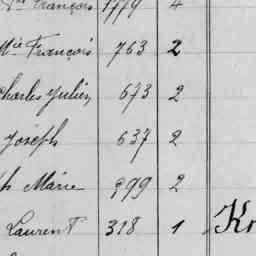 François 1779 4
Mie François 763 2
Charles Julien 673 2
Joseph 637 2
h Marie 399 2
Laurent 318 1 Kr